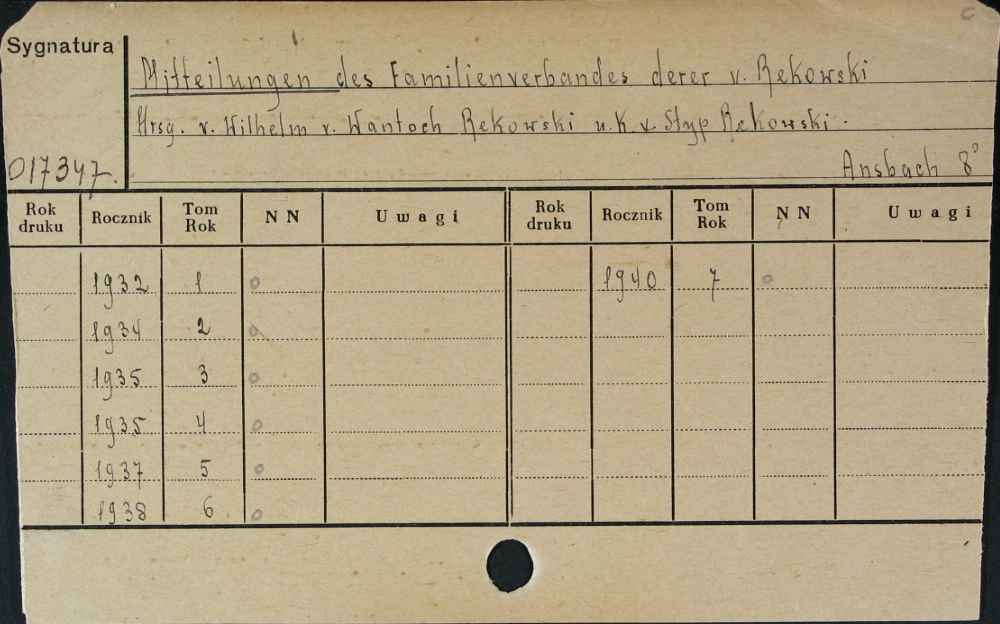 C
Sygnatura
Mitteilungen des Familienverbandes derer v. Rekowski
Hrsg. v. Wilhelm v. Wantoch Rekowski u. K. v. Styp Rekowski.
017347.
Ansbach 8°
Rok druku Rocznik Tom Rok NN Uwagi Rok druku Rocznik Tom Rok NN Uwagi
1932 1 o 1940 7 o
1934 2 o
1935 3 o
1935 4 o
1937 5 o
1938 6 o